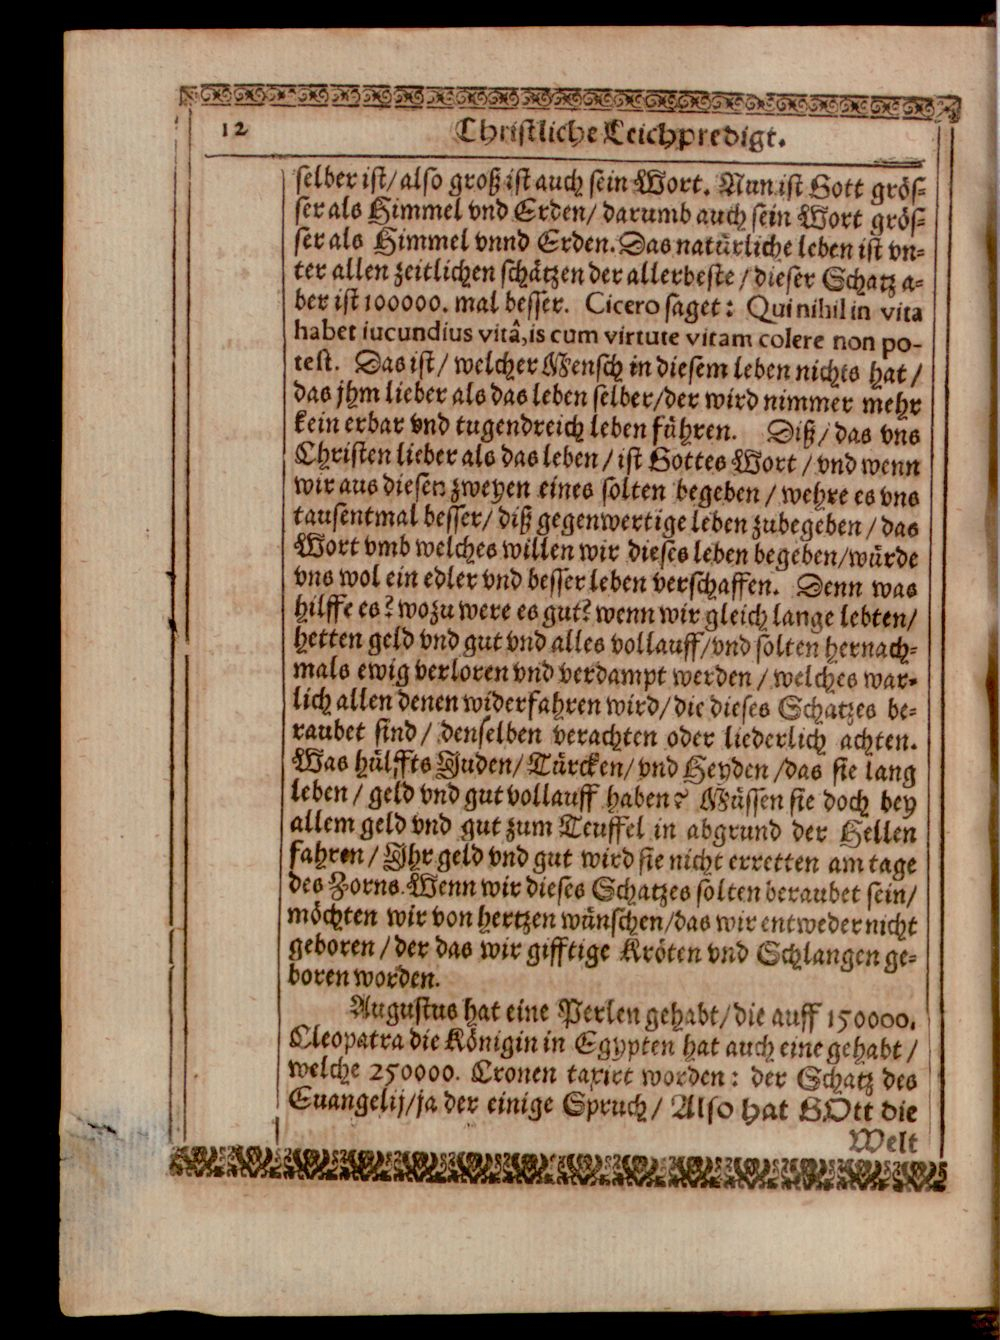 12 Christliche Leichpredigt.
selber ist/ also groß ist auch sein Wort. Nun ist Gott grös⸗
ser als Himmel vnd Erden/ darumb auch sein Wort grös⸗
ser als Himmel vnnd Erden. Das natürliche leben ist vn⸗
ter allen zeitlichen schätzen der allerbeste / dieser Schatz a⸗
ber ist 100000. mal besser. Cicero saget: Qui nihil in vita
habet iucundius vitâ, is cum virtute vitam colere non po-
test. Das ist / welcher Mensch in diesem leben nichts hat /
das jhm lieber als das leben selber/der wird nimmer mehr
kein erbar vnd tugendreich leben führen. Diß / das vns
Christen lieber als das leben / ist Gottes Wort / vnd wenn
wir aus diesen zweyen eines solten begeben / wehre es vns
tausentmal besser/ diß gegenwertige leben zubegeben / das
Wort vmb welches willen wir dieses leben begeben/würde
vns wol ein edler vnd besser leben verschaffen. Denn was
hilffe es? wozu were es gut? wenn wir gleich lange lebten/
hetten geld vnd gut vnd alles vollauff/vnd solten hernach⸗
mals ewig verloren vnd verdampt werden / welches war⸗
lich allen denen widerfahren wird/ die dieses Schatzes be⸗
raubet sind / denselben verachten oder liederlich achten.
Was hülffts Juden/ Türcken/ vnd Heyden /das sie lang
leben / geld vnd gut vollauff haben? Müssen sie doch bey
allem geld vnd gut zum Teuffel in abgrund der Hellen
fahren / Ihr geld vnd gut wird sie nicht erretten am tage
des Zorns. Wenn wir dieses Schatzes solten beraubet sein/
möchten wir von hertzen wünschen/das wir entweder nicht
geboren / der das wir gifftige Kröten vnd Schlangen ge⸗
boren worden.
Augustus hat eine Perlen gehabt/ die auff 150000.
Cleopatra die Königin in Egypten hat auch eine gehabt /
welche 250000. Cronen taxirt worden: der Schatz des
Euangelij/ja der einige Spruch/ Also hat GOtt die
Welt